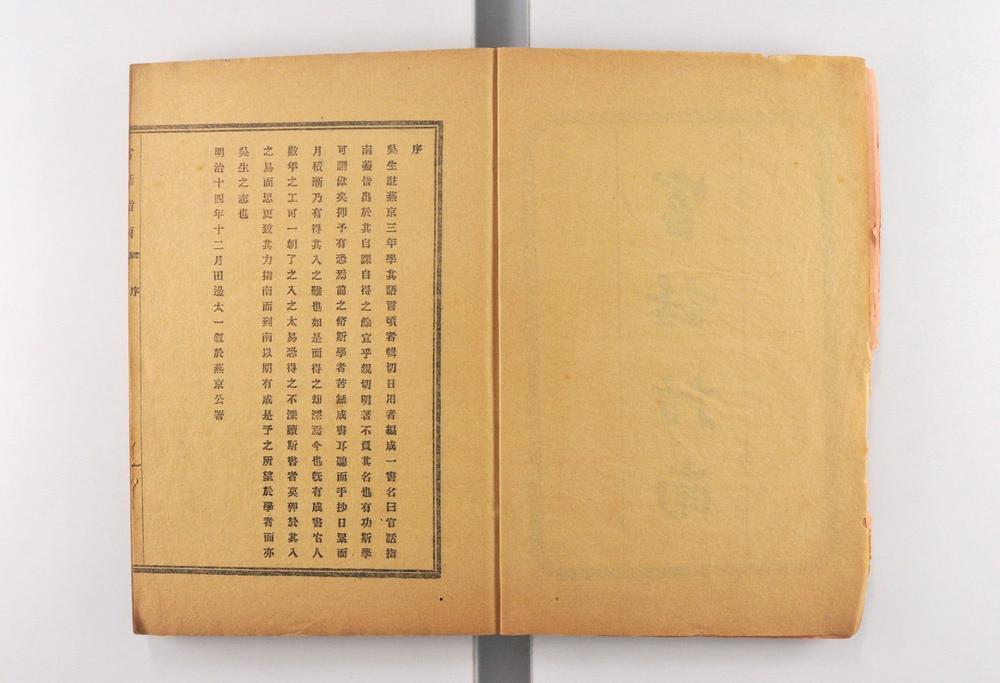 序
吳生駐燕京三年學其語言頃者輯切日用者編成一書名曰官話指
南蓋皆出於其自課自得之餘宜乎親切明著不負其名也有功斯學
可謂偉矣抑予有恐焉前之脩斯學者苦無成書耳聽而手抄日累而
月積漸乃有得其入之難也如是而得之却深焉今也旣有成書宕人
數年之工可一朝了之入之太易恐得之不深讀斯書者莫狃於其入
之易而思更致其力指南而到南以期有成是予之所望於學者而亦
吳生之志也
明治十四年十二月田邊太一叙於燕京公署
官話指南 序
官話指南